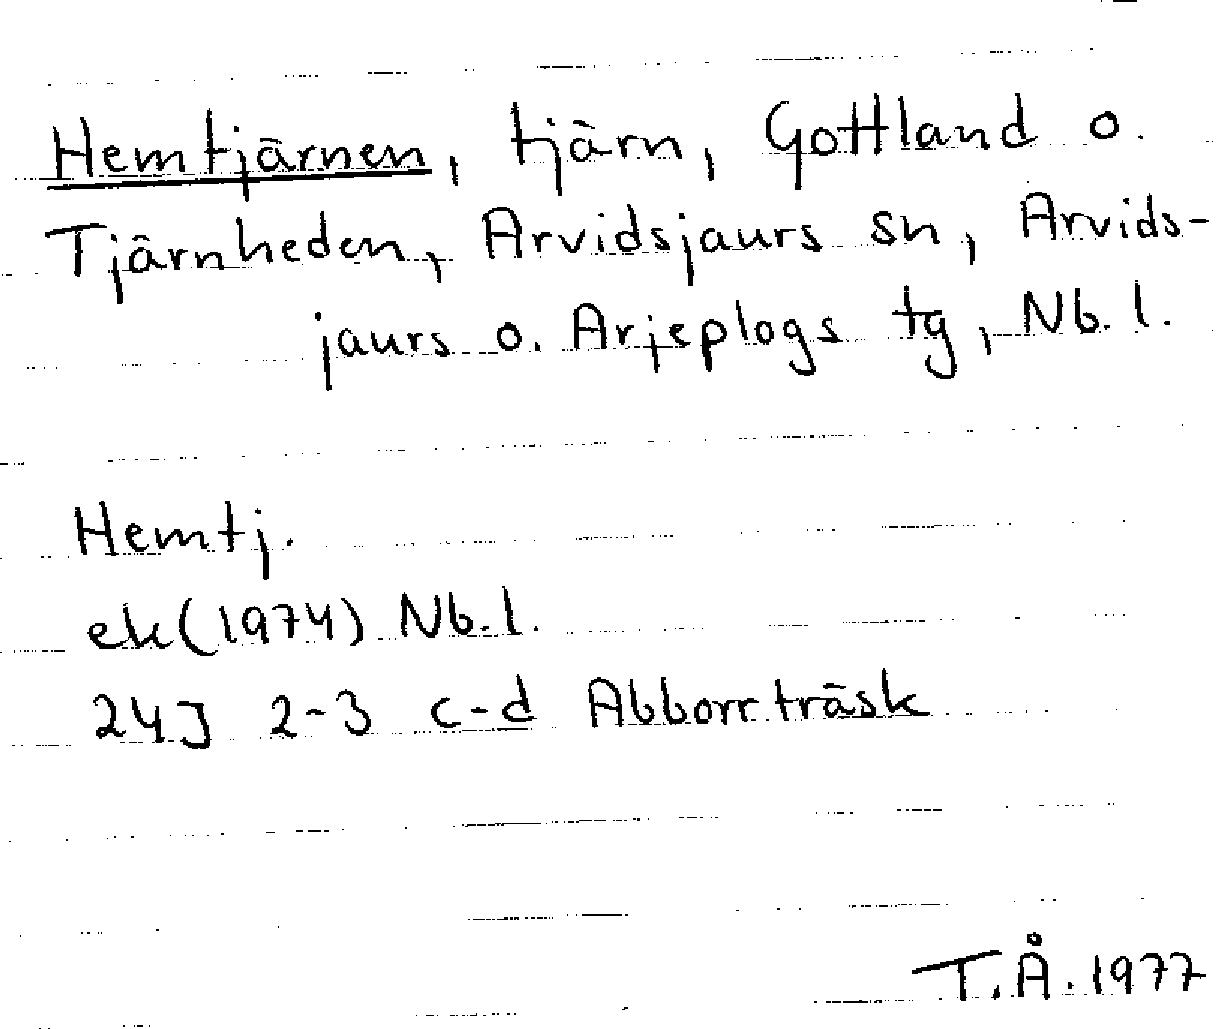 Hemtjärnen, tjärn, Gottland o.
Tjärnheden, Arvidsjaurs sn, Arvids-
jaurs o. Arjeplogs tg, Nb. l.
Hemtj.
ek (1974) Nb. l.
24J 2-3 c-d Abborrträsk
T.Å. 1977